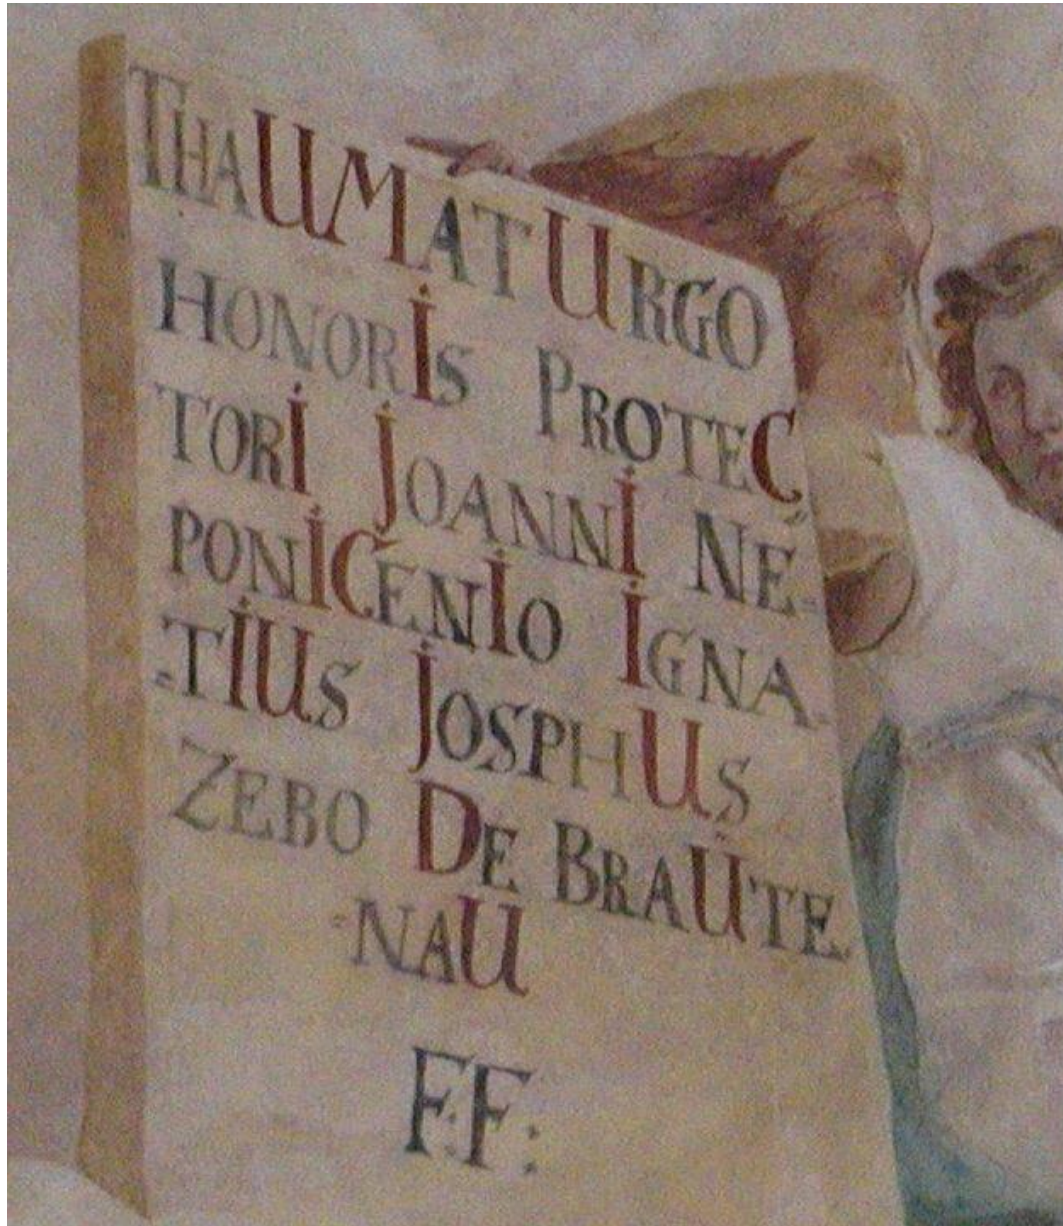 THAUMATURGO
HONORIS PROTEC
TORI JOANNI NE-
PONICENIO IGNA-
-TIUS JOSPHUS
ZEBO DE BRAUTE
-NAU
F:F: